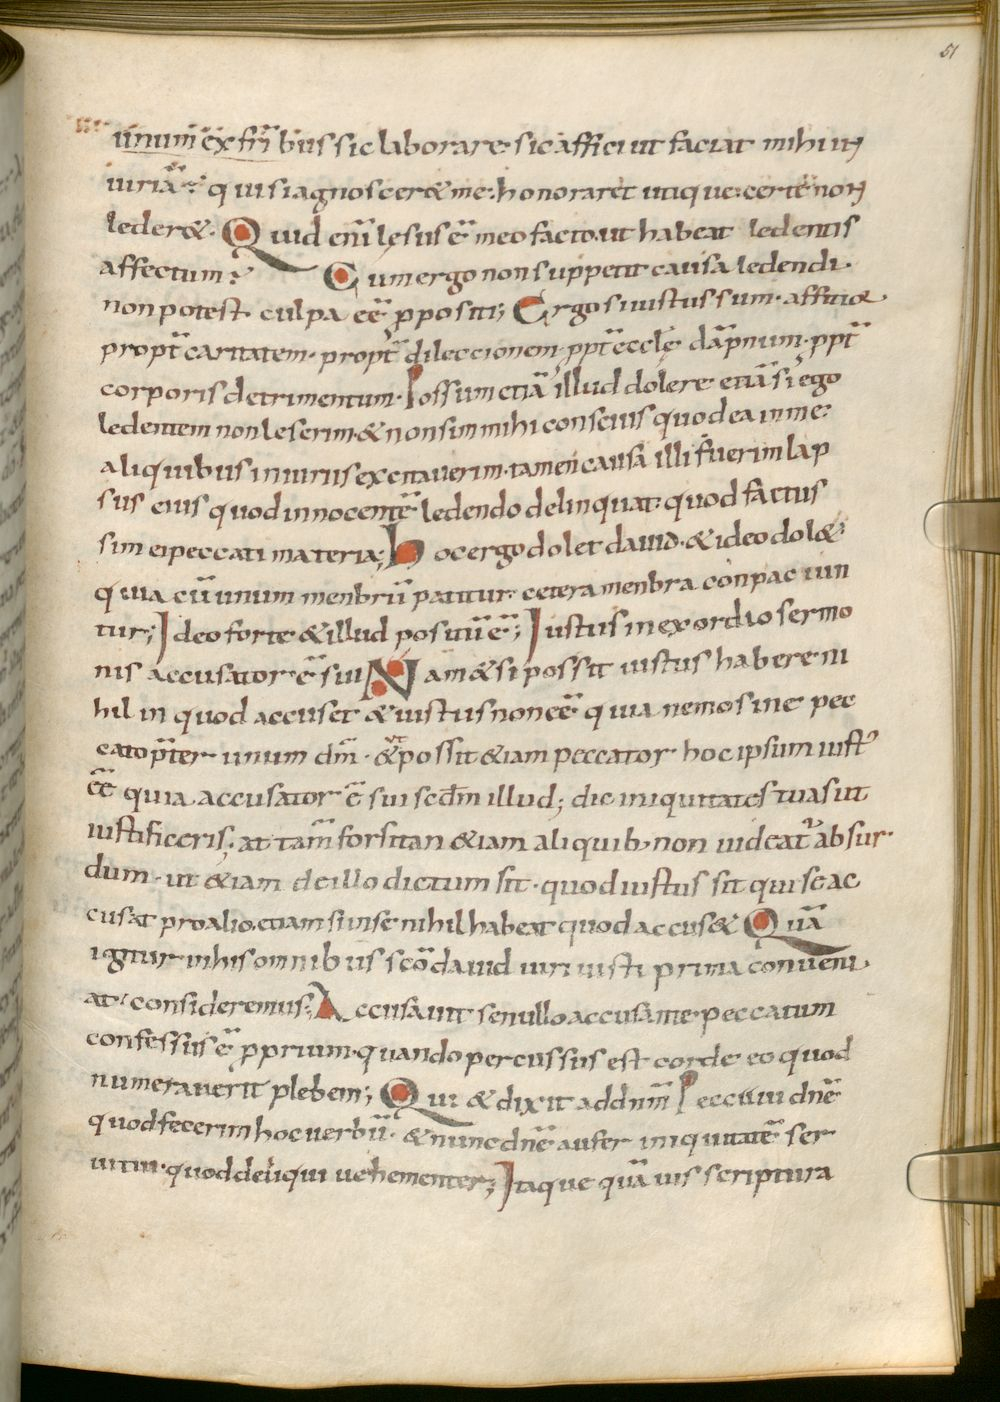 51
unum ex frībus sic laborare sic affici ut faciat mihi in
iuriā? qui si agnosceret me. honoraret utique. certe non
lederet. Quid enī lęsus ē meo facto. ut habeat ledentis
affectum? Cum ergo non suppetit causa ledendi.
non potest culpa eē ꝓpositi; Ergo si iustus sum. afficior
propt̄ caritatem. propt̄ dileccionem ppt̄ ecclę̄ dāpnum. ppt̄
corporis detrimentum. Possum etiā illud dolere. etiā si ego
ledentem non leserim. & non sim mihi conscius quod ea in me
aliquibus iniuriis excitauerim. tamen causa illi fuerim lap
sus eius quod innocentē ledendo delinquat. quod factus
sim ei peccati materia; Hoc ergo dolet dauid. & ideo dol&
quia cū unum menbrū patitur. cetera menbra conpaciun
tur; Ideo forte & illud positū ē; Iustus in exordio sermo
nis accusator ē sui Nam & si possit iustus habere ni
hil in quod accuset & iustus non eē quia nemo sine pec
cato p̄ter unum dm̄. & possit &iam peccator hoc ipsum iust᾽
eē quia accusator ē sui scd̄m illud; dic iniquitates tuas ut
iustificeris; at tam̄ forsitan &iam aliquib; non uideat᾽ absur
dum. ut &iam de illo dictum sit. quod iustus sit qui se ac
cusat pro alio. etiam si in se nihil habeat quod accus& Quā
igitur in his omnibus scō dauid uiri iusti prima conueni
at. consideremus; Accusauit se nullo accusante. peccatum
confessus ē ꝓprium. quando percussus est corde eo quod
numerauerit plebem; Qui & dixit ad dnm̄ Peccaui dnē
quod fecerim hoc uerbū. & nunc dnē aufer iniquitatē ser
ui tui. quod deliqui uehementer; Itaque quāuis scriptura